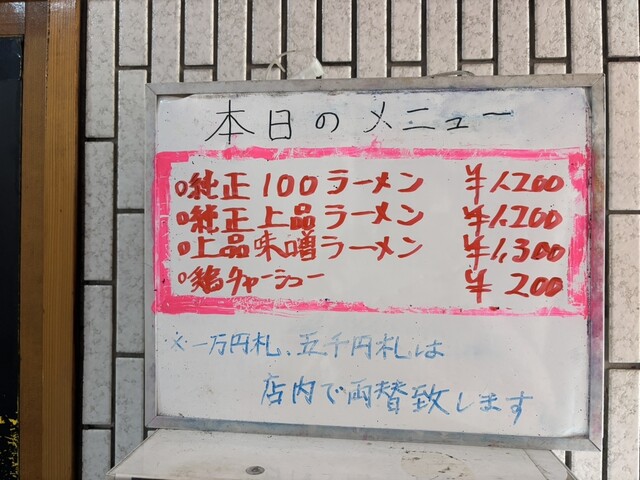 本日のメニュー
○純正100ラーメン ¥1,200
○純正上品ラーメン ¥1,200
○上品味噌ラーメン ¥1,300
○鶏チャーシュー ¥200
※一万円札、五千円札は
店内で両替致します